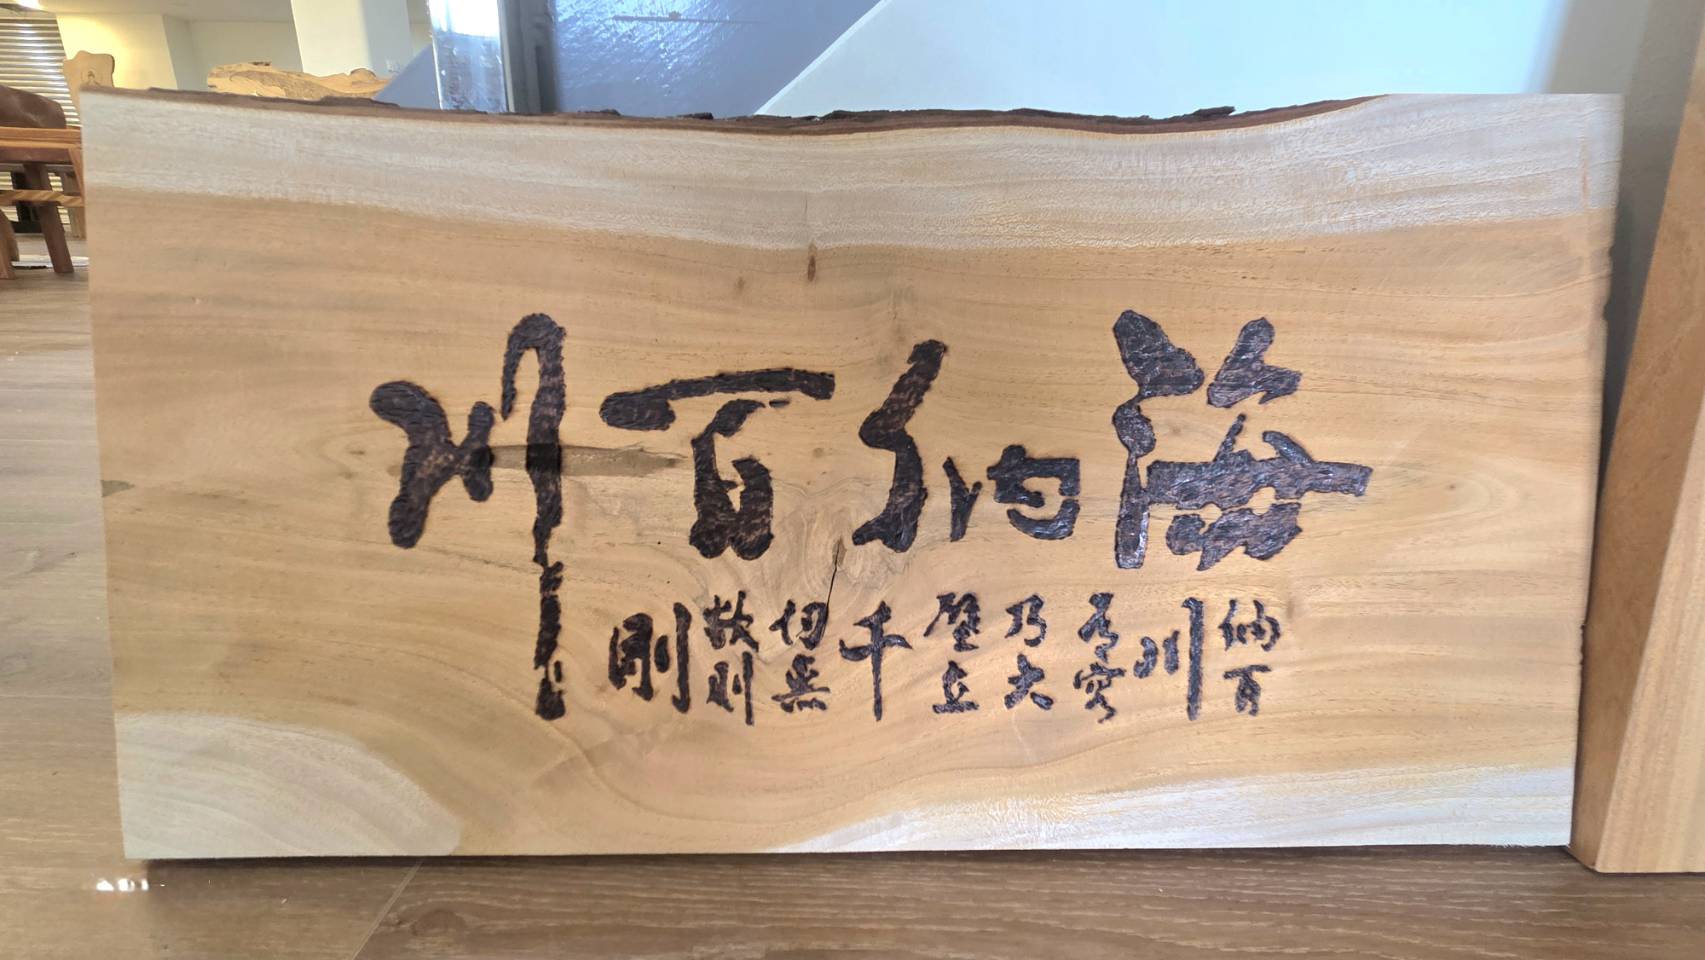 海納百川
納百川有容乃大壁立千仞無欲則剛